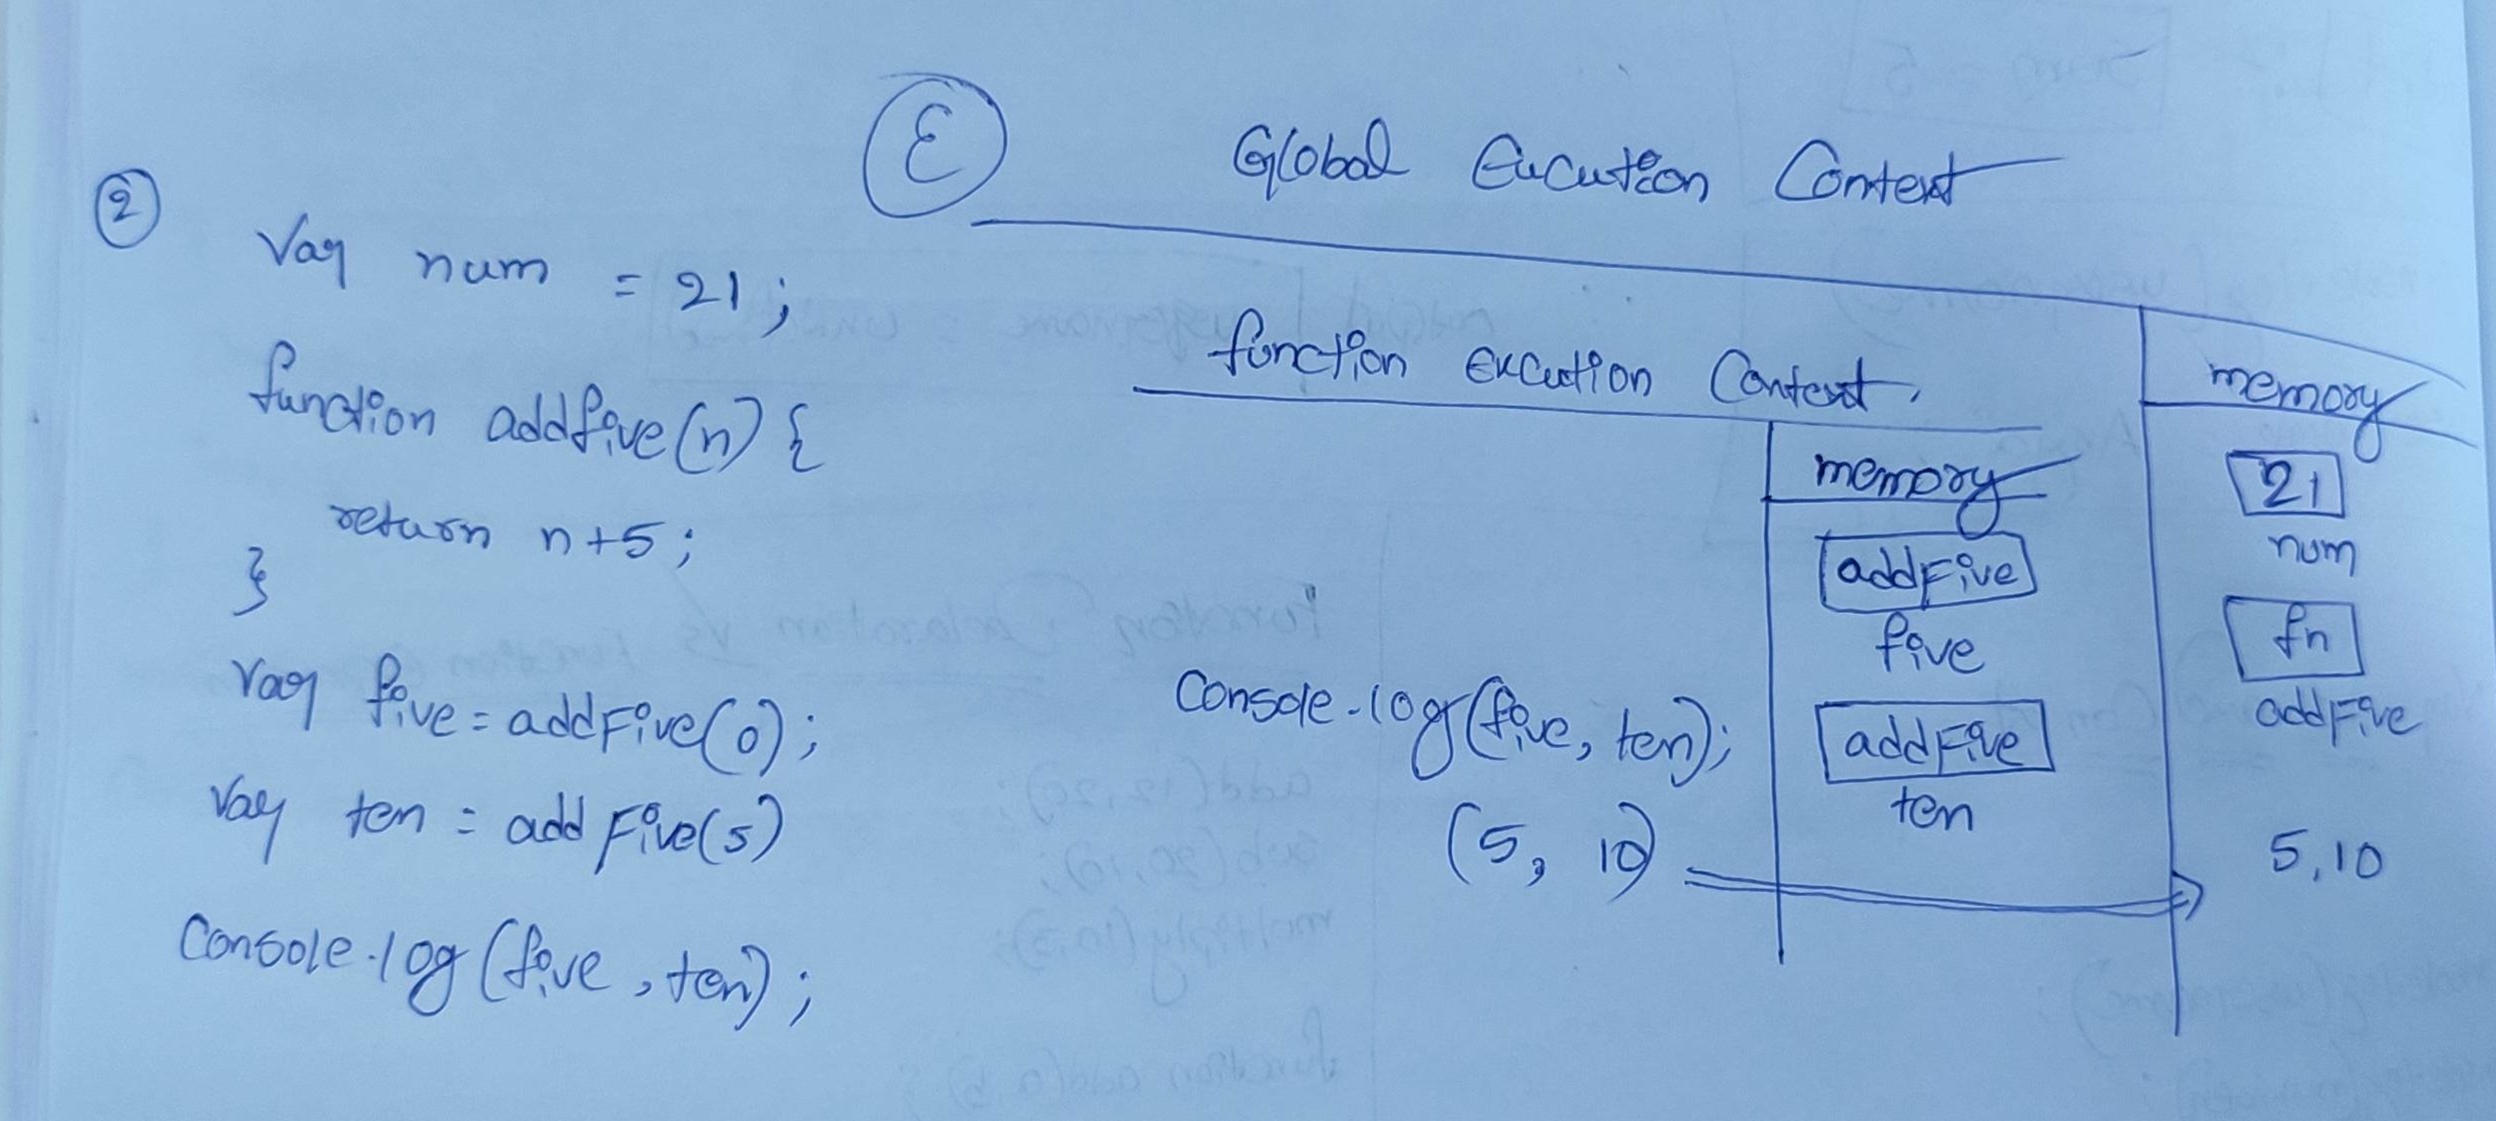 ②
Var num = 21;
function addfive(n) {
return n+5;
}
Var five = addFive(0);
Var ten = addFive(5)
Console.log(five, ten);
E
Global Excution Context
function Excution Context,
memory
addFive
five
addFive
ten
Console.log(five, ten);
(5, 10)
memory
21
num
fn
addFive
5,10